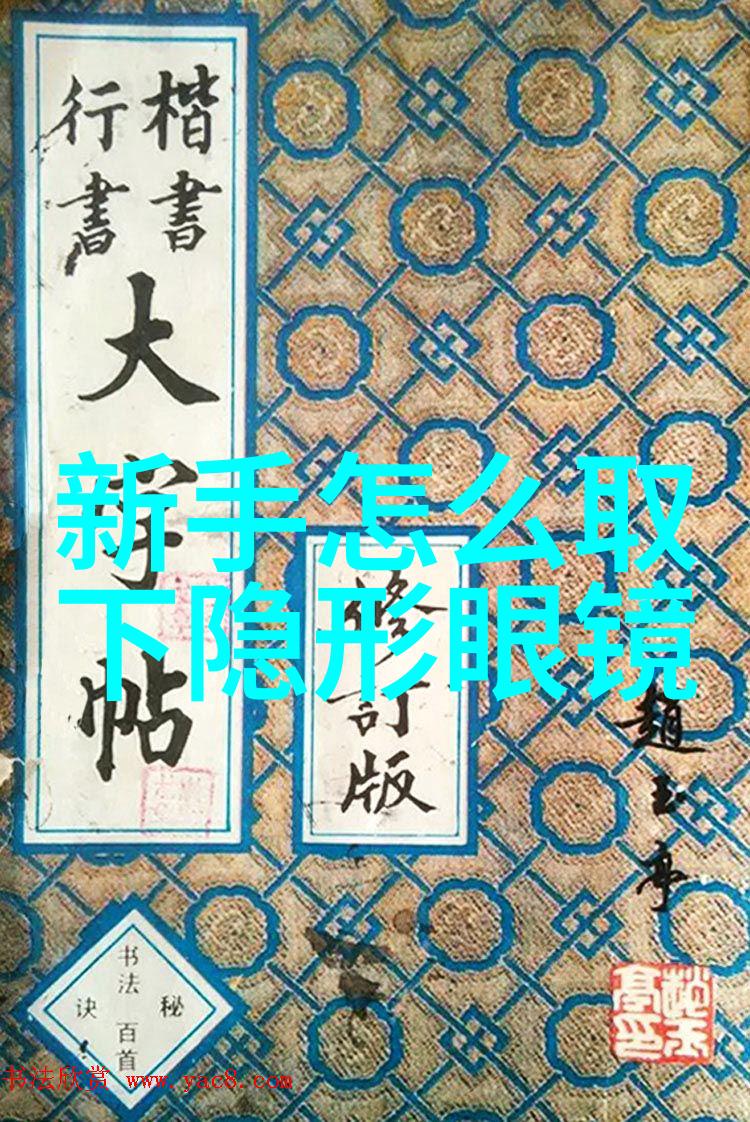 楷書
行書
大字帖
修订版
新手怎么取
下隐形眼镜
趙玉亭
书法
百首
秘
诀
书法欣赏 www.yac8.com